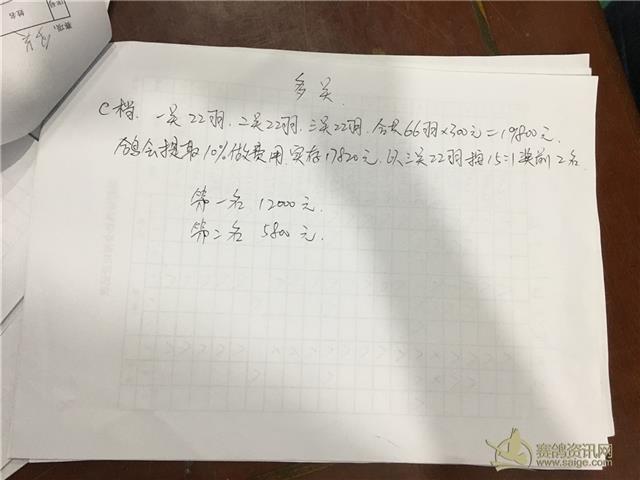 姓名
多关
C档. 一关22羽. 二关22羽. 三关22羽. 合共66羽×300元=19800元.
鸽会提取10%做费用. 实存17820元. 以三关22羽按15=1奖前2名
第一名 12000元.
第二名 5800元.
赛鸽资讯网
www.saige.com